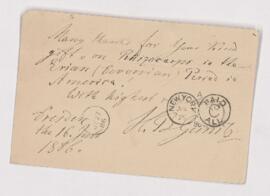 Many thanks for your kind
gift, on Rhizocarps in the
Erian (Devonian) Period in
America.
With highest
Dresden
the 16. June
1886.
H. B. Geinitz
NEW YORK
PAID
ALL